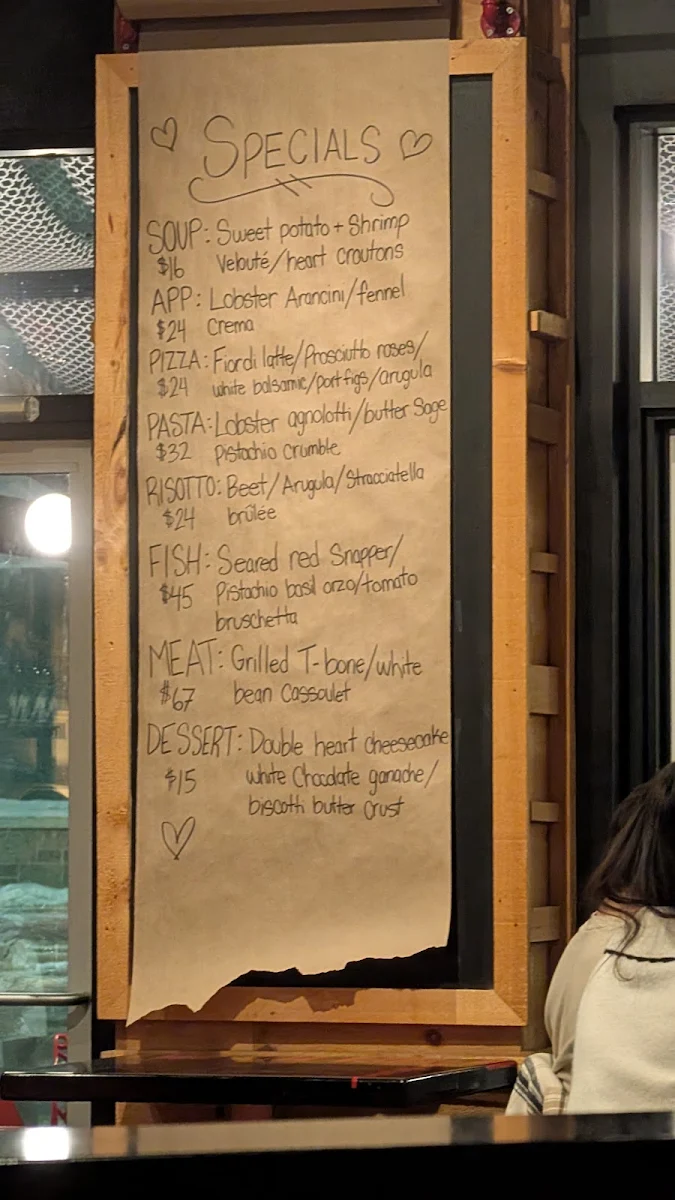 SPECIALS
SOUP: Sweet potato + Shrimp
$16 Velouté/heart croutons
APP: Lobster Arancini/fennel
$24 Crema
PIZZA: Fiordi latte/Prosciutto roses/
$24 white balsamic/port figs/arugula
PASTA: Lobster agnolotti/butter Sage
$32 Pistachio Crumble
RISOTTO: Beet/Arugula/Stracciatella
$24 brûlée
FISH: Seared red Snapper/
$45 Pistachio basil orzo/tomato
bruschetta
MEAT: Grilled T-bone/white
$67 bean Cassoulet
DESSERT: Double heart cheesecake
$15 white Chocolate ganache/
biscotti butter crust